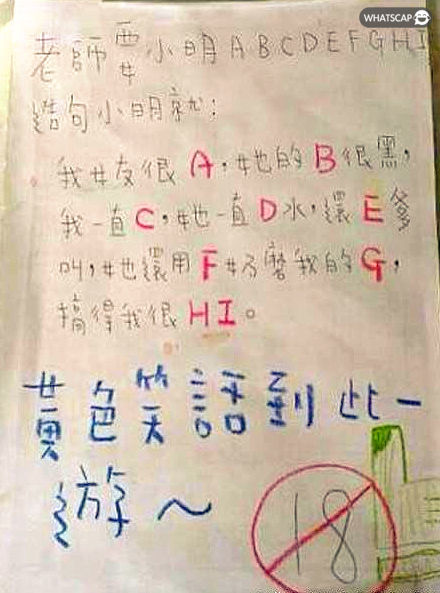 WHATSCAP
老師要小明ABCDEFGHI
造句小明就:
我女友很A,她的B很黑,
我一直C,她一直D水,還E爹
叫,她還用F奶磨我的G,
搞得我很HI。
黃色笑話到此一
遊~
18